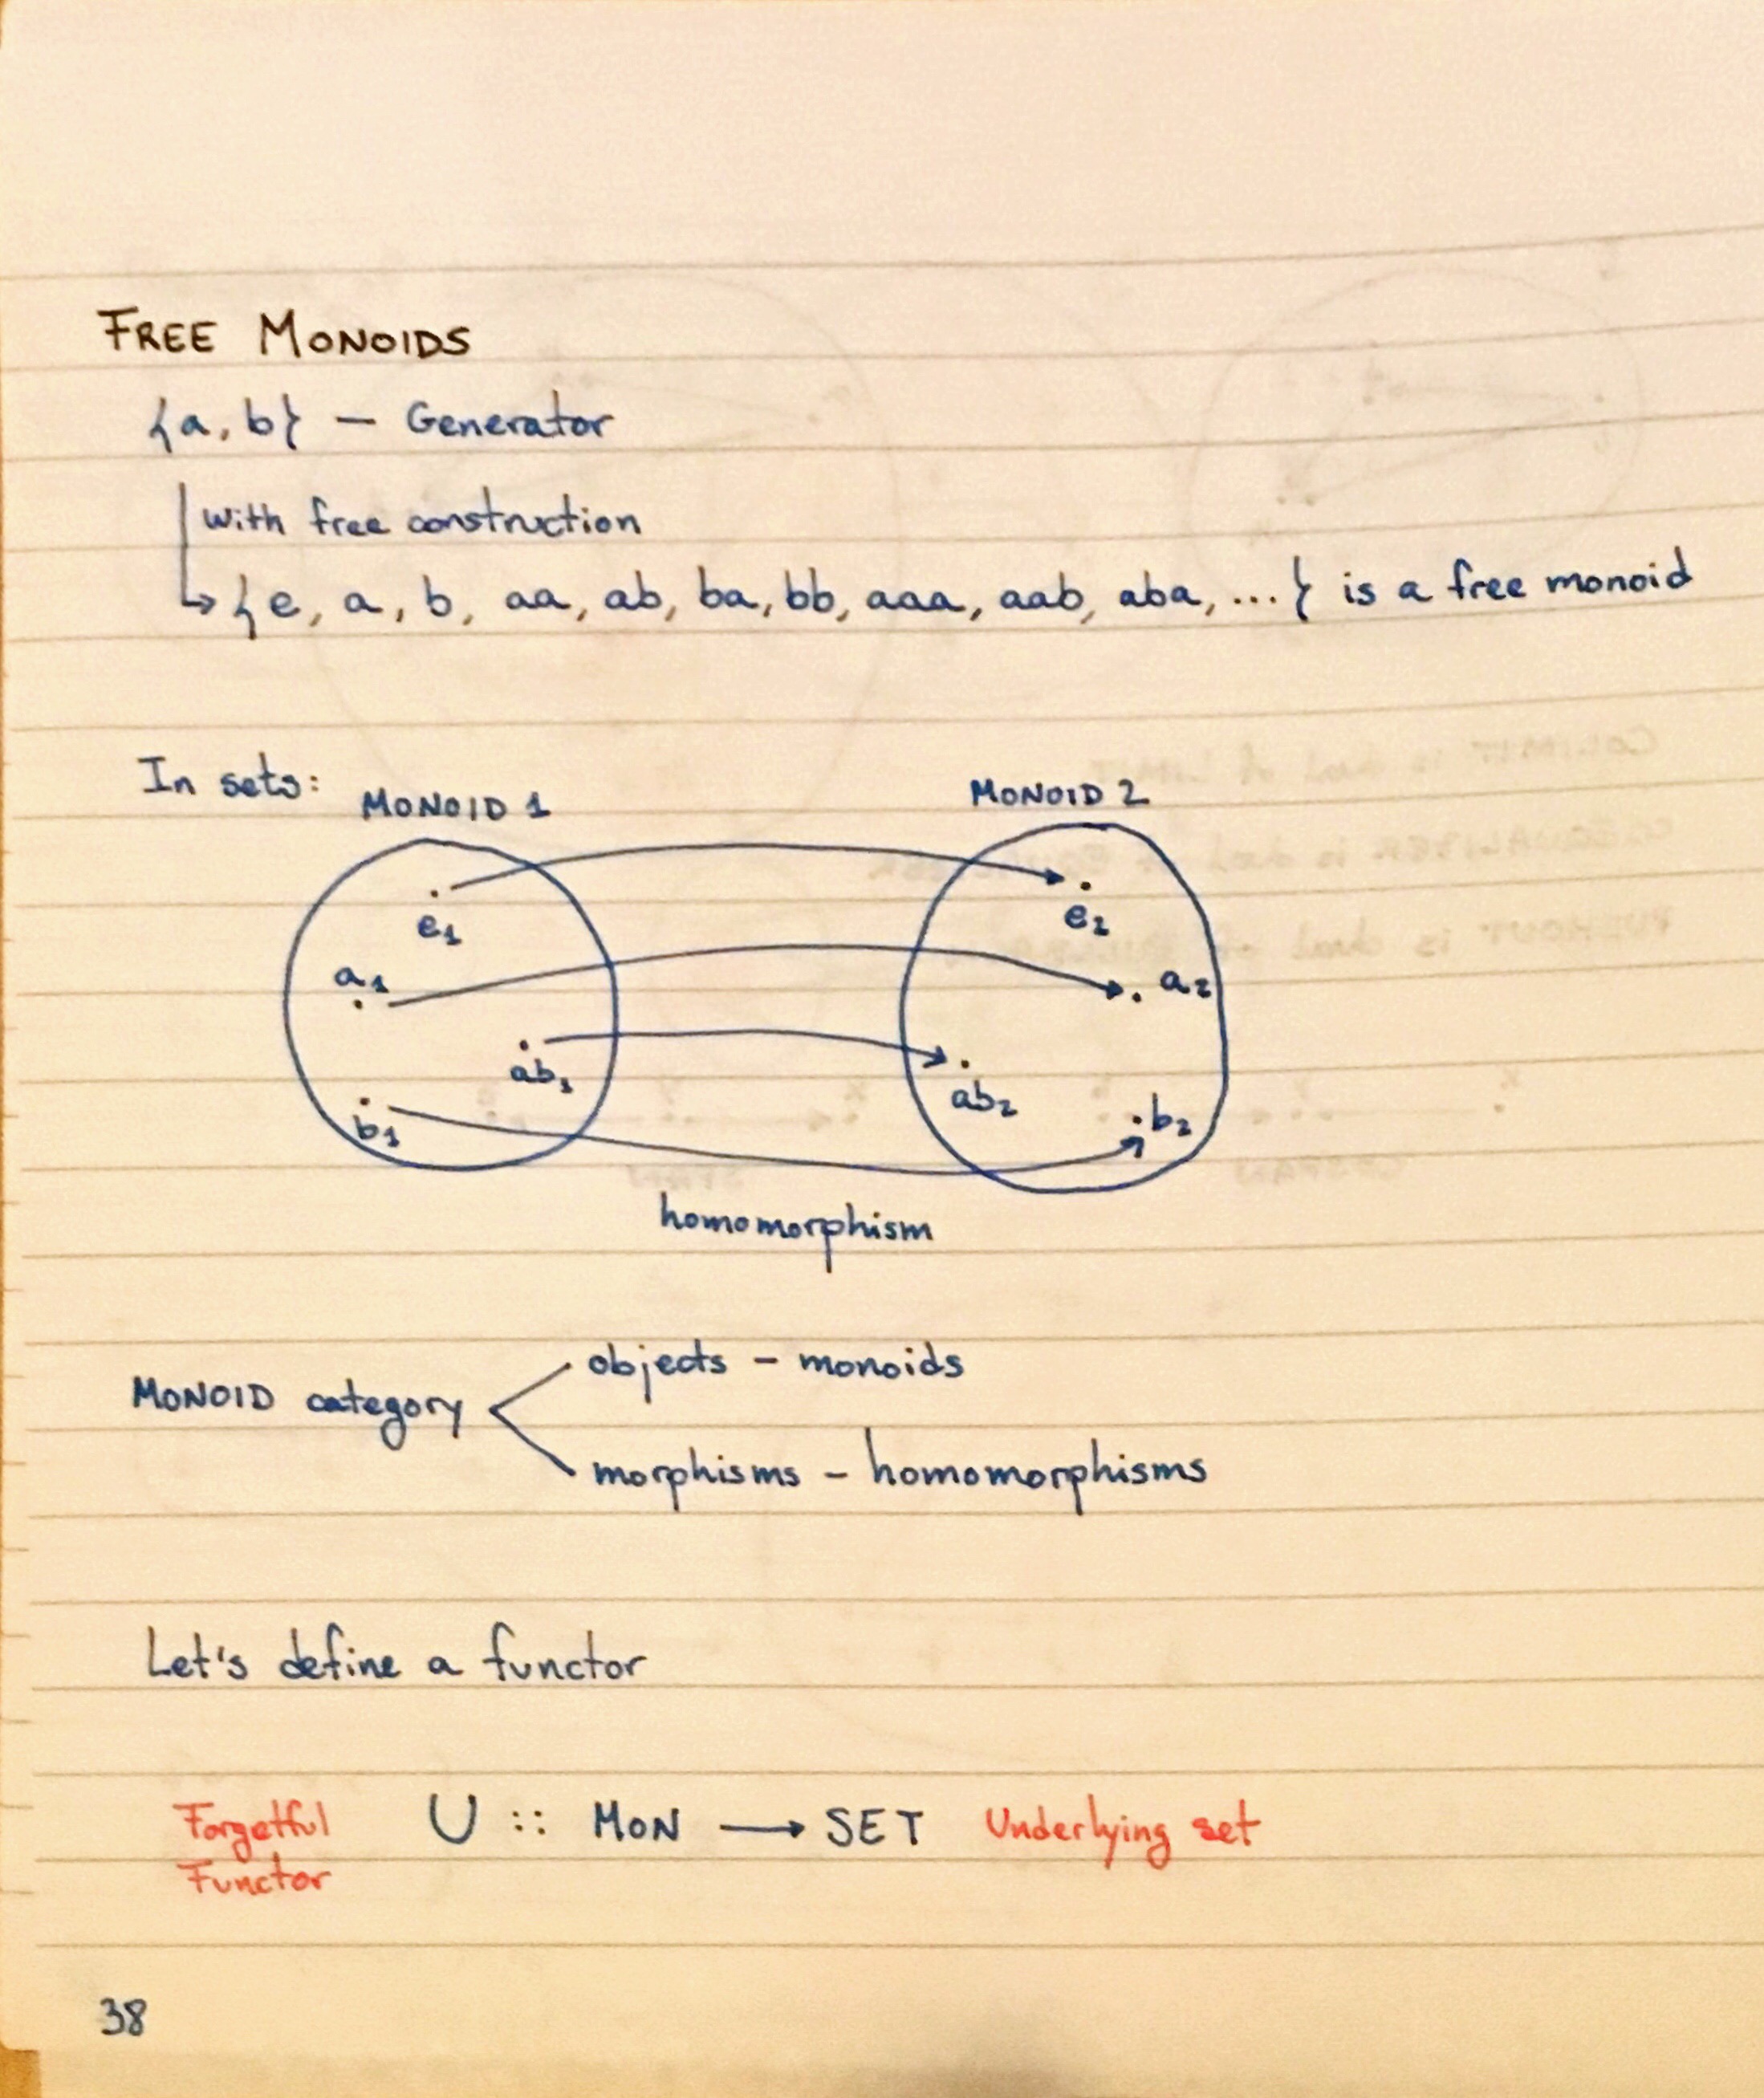 FREE MONOIDS
{a, b} — Generator
with free construction
{e, a, b, aa, ab, ba, bb, aaa, aab, aba, ...} is a free monoid
In sets:
MONOID 1
MONOID 2
e₁
e₂
a₁
a₂
ab₁
ab₂
b₁
b₂
homomorphism
objects – monoids
MONOID category
morphisms – homomorphisms
Let's define a functor
Forgetful U :: MON → SET Underlying set
Functor
38